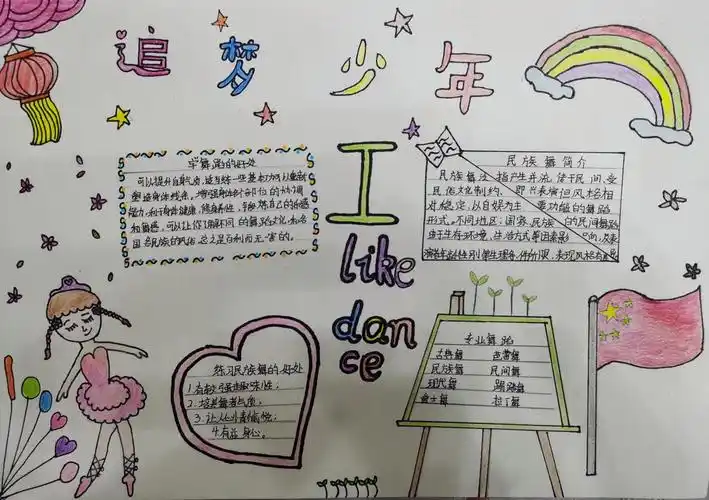 追梦少年
I
like
dan
ce
学舞蹈的好处
可以提升自身气质,练习一些基本功可以重新
塑造身体线条,增强身体各部位的协调
能力,利于身体健康,修身养性,锻炼自己的乐感
和节奏感,可以让你了解不同的舞蹈文化和各
国各民族的风俗总之是百利而无一害的。
民族舞简介
民族舞泛指产生并流传于民间、受
民俗文化制约、即兴表演但风格相
对稳定、以自娱为主要功能的舞蹈
形式。不同地区、国家、民族的民间舞蹈
由于生存环境、生活方式等因素影
练习民族舞的好处
1.有较强趣味性;
2.培养舞者气质;
3.让人心情愉悦;
4.有益身心。
专业舞蹈
古典舞 芭蕾舞
民族舞 民间舞
现代舞 踢踏舞
爵士舞 拉丁舞